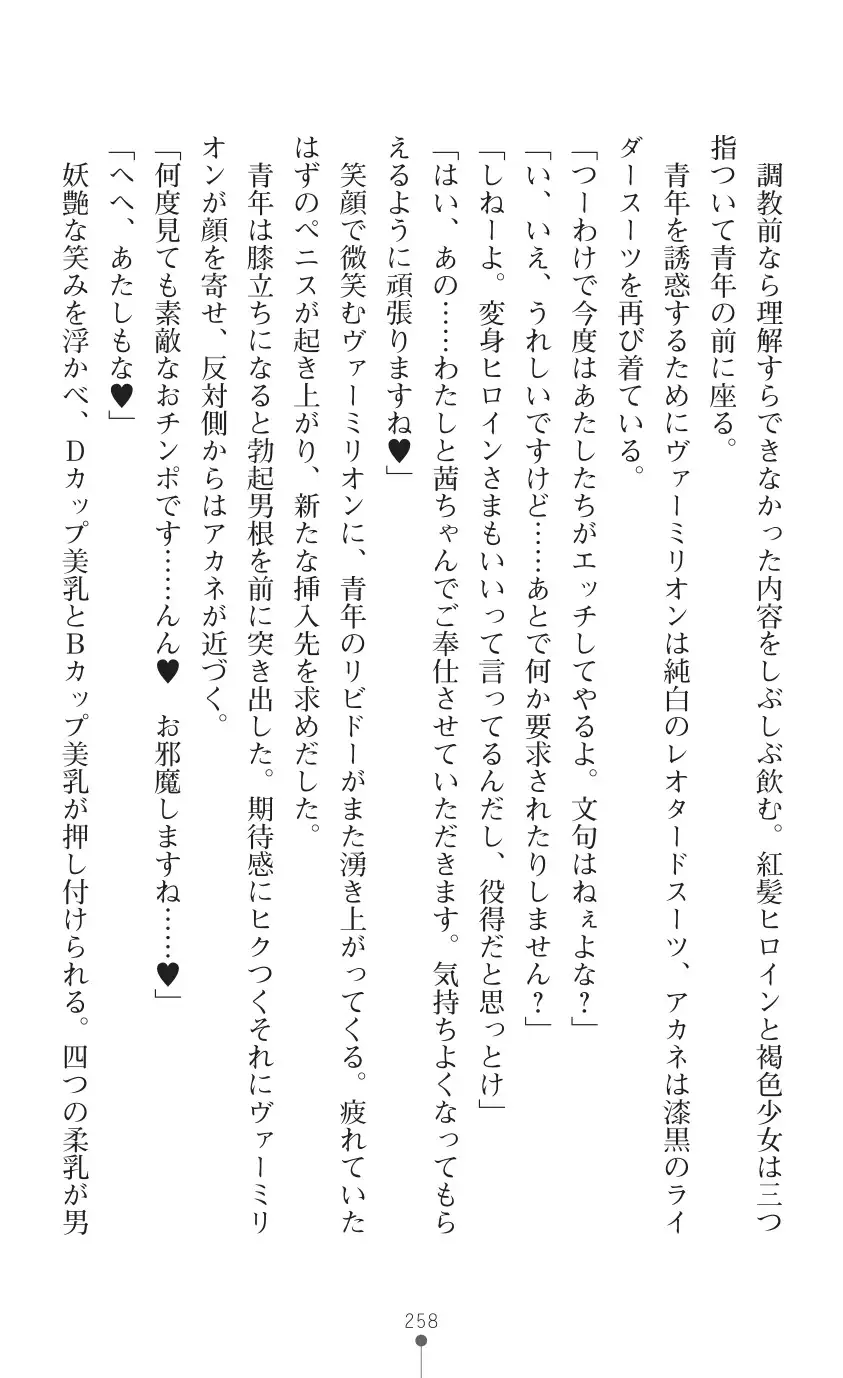 調教前なら理解すらできなかった内容をしぶしぶ飲む。紅髪ヒロインと褐色少女は三つ
指ついて青年の前に座る。
青年を誘惑するためにヴァーミリオンは純白のレオタードスーツ、アカネは漆黒のライ
ダースーツを再び着ている。
「つーわけで今度はあたしたちがエッチしてやるよ。文句はねぇよな?」
「い、いえ、うれしいですけど……あとで何か要求されたりしません?」
「しねーよ。変身ヒロインさまもいいって言ってるんだし、役得だと思っとけ」
「はい、あの……わたしと茜ちゃんでご奉仕させていただきます。気持ちよくなってもら
えるように頑張りますね♥」
笑顔で微笑むヴァーミリオンに、青年のリビドーがまた湧き上がってくる。疲れていた
はずのペニスが起き上がり、新たな挿入先を求めだした。
青年は膝立ちになると勃起男根を前に突き出した。期待感にヒクつくそれにヴァーミリ
オンが顔を寄せ、反対側からはアカネが近づく。
「何度見ても素敵なおチンポです……んん♥　お邪魔しますね……♥」
「へへ、あたしもな♥」
妖艶な笑みを浮かべ、Dカップ美乳とBカップ美乳が押し付けられる。四つの柔乳が男
258